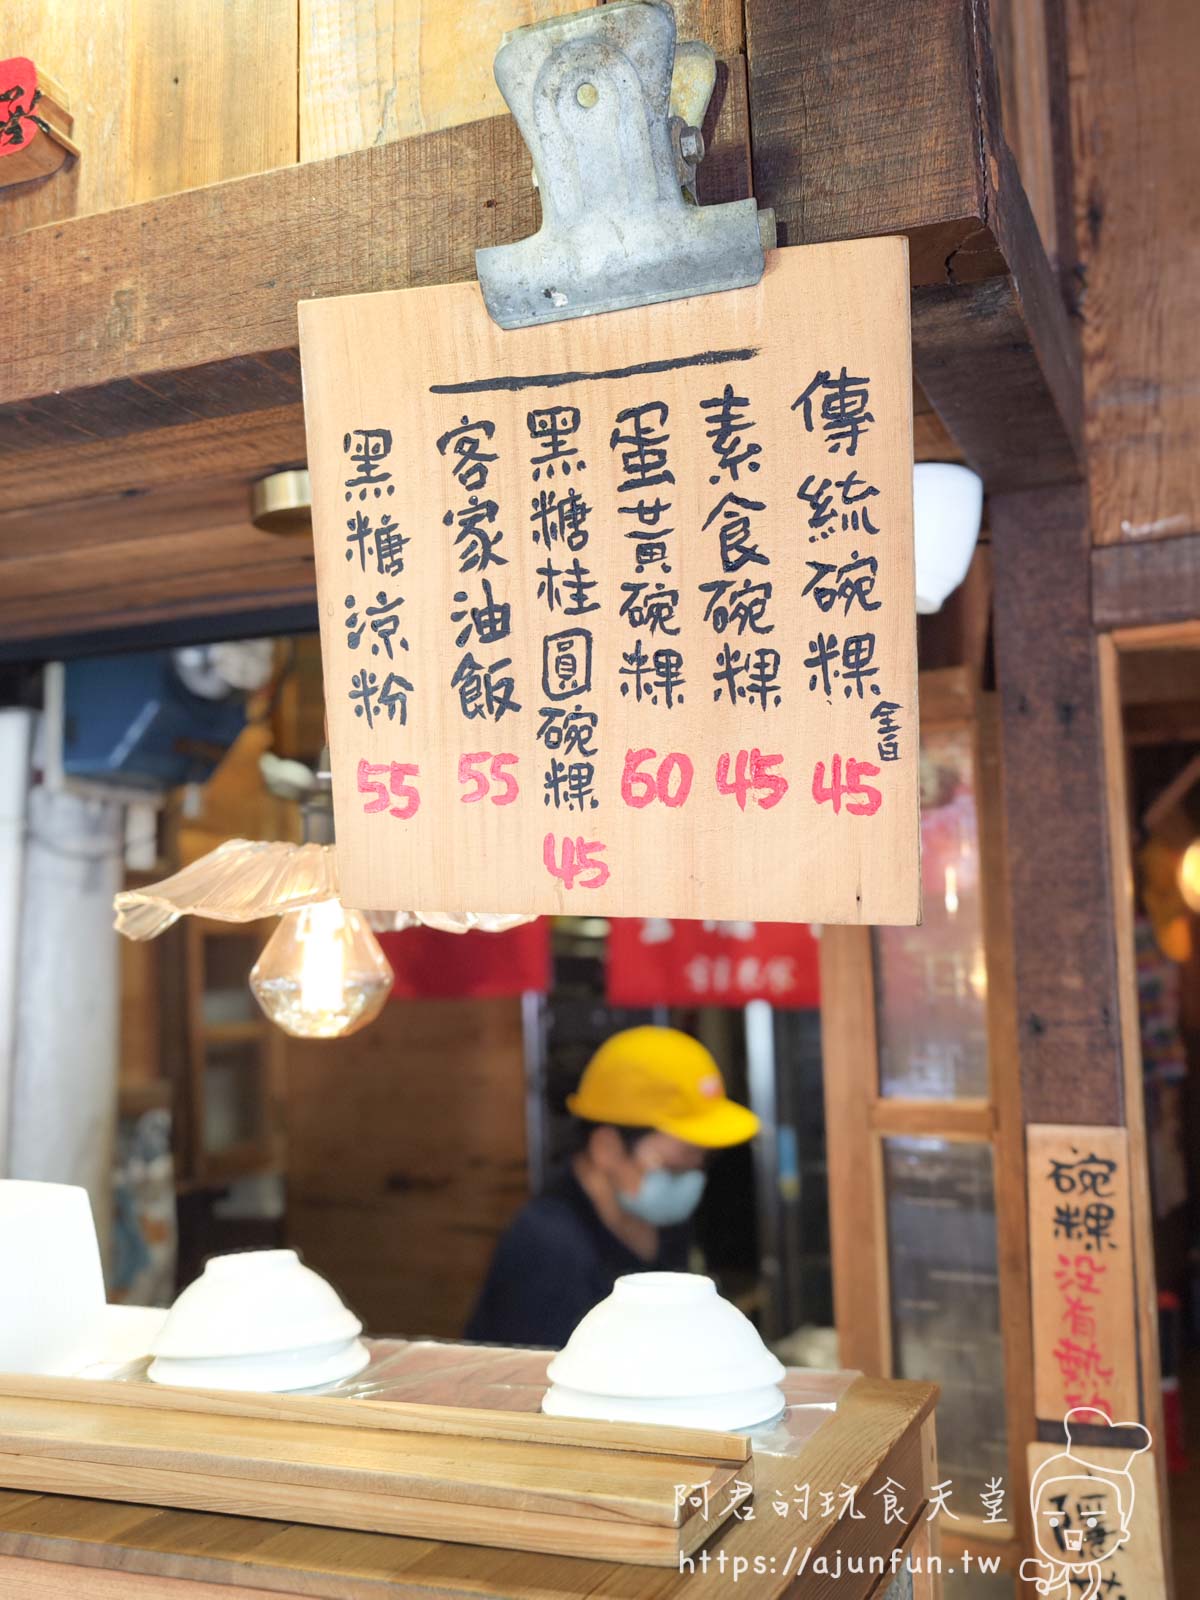 傳統碗粿 全白 45
素食碗粿 45
蛋黃碗粿 60
黑糖桂圓碗粿 45
客家油飯 55
黑糖涼粉 55
碗粿沒有熱的
阿君的玩食天堂
https://ajunfun.tw